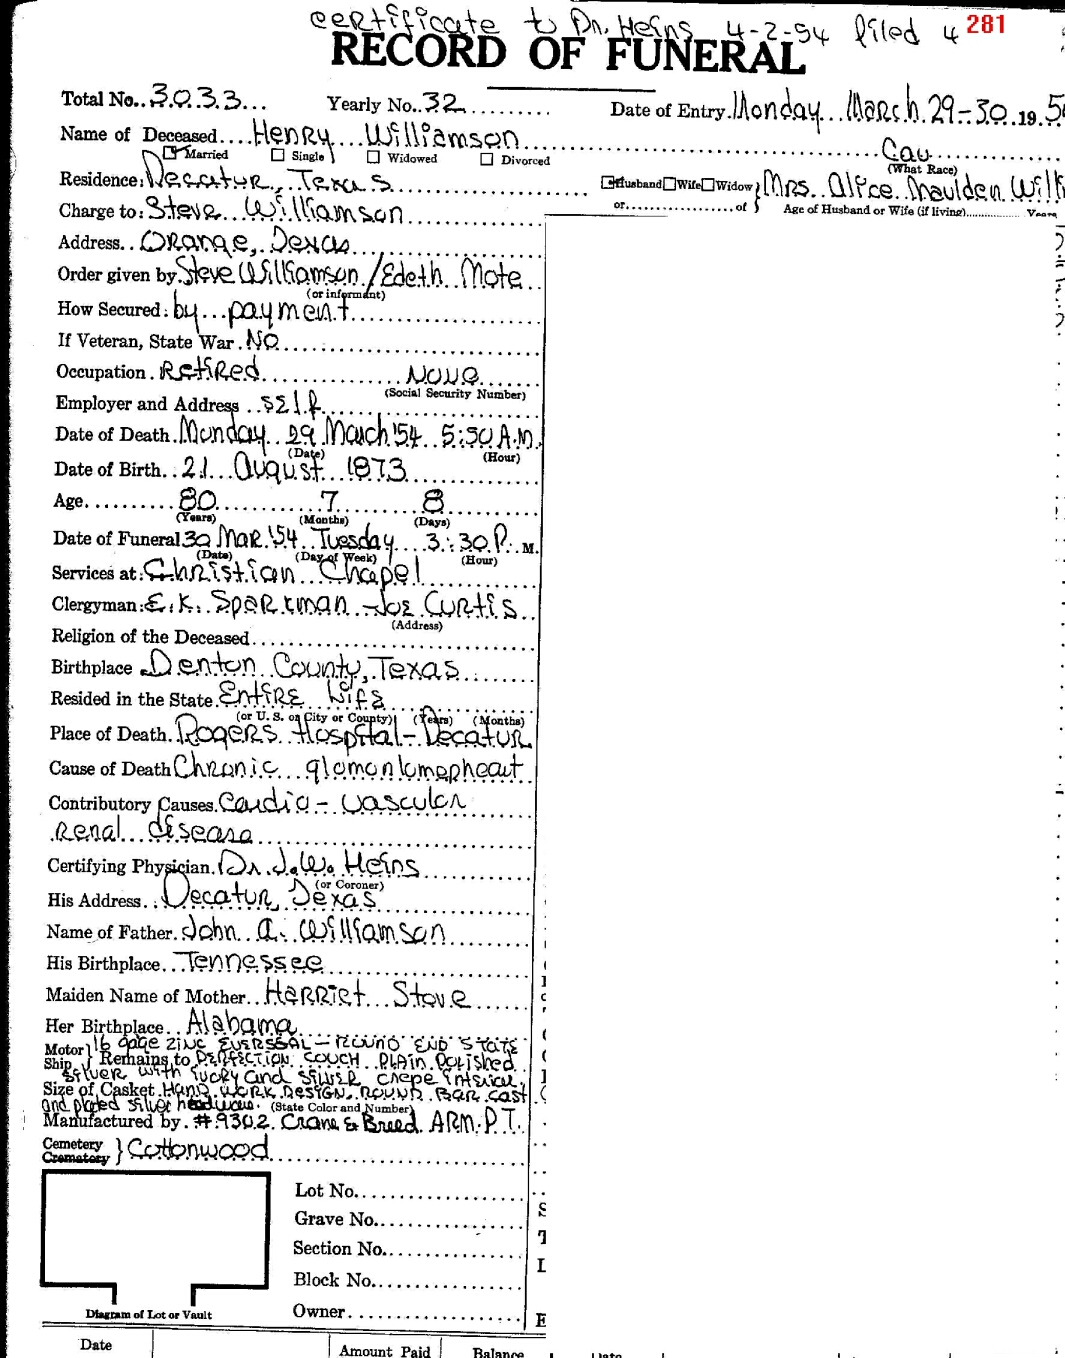 certificate to Dr. Heins 4-2-54 filed 4 281
RECORD OF FUNERAL
Total No..3033... Yearly No..32.......... Date of Entry.Monday...March.29-30.19.5
Name of Deceased....Henry...Williamson.......Cau.
☑ Married ☐ Single ☐ Widowed ☐ Divorced (What Race)
Residence:Decatur, Texas ☑Husband☐Wife☐Widow} Mrs. Alice Maulden Will
or...................of } Age of Husband or Wife (if living).............. Years
Charge to: Steve Williamson
Address.. Orange, Texas
Order given by Steve Williamson/Edeth Mote
(or informant)
How Secured: by...payment
If Veteran, State War. No
Occupation. Retired None
(Social Security Number)
Employer and Address.. self
Date of Death. Monday 29 March '54 5:50 A.M.
(Date) (Hour)
Date of Birth.. 21 August 1873
Age......... 80 7 8
(Years) (Months) (Days)
Date of Funeral 30 Mar. '54 Tuesday 3:30 P. M.
(Date) (Day of Week) (Hour)
Services at: Christian Chapel
Clergyman: E.K. Sparkman - Joe Curtis
(Address)
Religion of the Deceased
Birthplace Denton County, Texas
Resided in the State. Entire Life
(or U. S. or City or County) (Years) (Months)
Place of Death. Rogers Hospital - Decatur
Cause of Death Chronic
Contributory Causes. Cardio - vascular
renal disease
Certifying Physician. Dr. J.W. Heins
(or Coroner)
His Address.. Decatur, Texas
Name of Father. John A. Williamson
His Birthplace... Tennessee
Maiden Name of Mother.. Harriet
Her Birthplace.. Alabama
Motor} 16 gage zinc - round end state
Ship } Remains to Perfection couch plain polished
silver with ivory and silver crepe interior
Size of Casket Hand work design, round bar cast
and plated silver hardware. (State Color and Number)
Manufactured by. #9302. Crane & Breed ARM. P.T.
Cemetery
Crematory } Cottonwood
Lot No.
Grave No.
Section No.
Block No.
Owner
Diagram of Lot or Vault
Date Amount Paid Balance Date